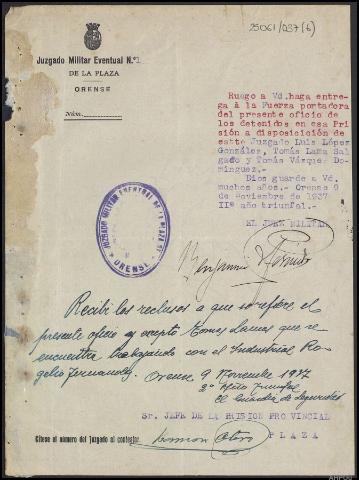 25061/037(6)
Juzgado Militar Eventual N.º 1
DE LA PLAZA
ORENSE
Núm.
Ruego a Vd. haga entre-
ga à la Fuerza portadora
del presente oficio de
los detenidos en esa Pri
sión a disposisición de
estte Juzgado Luis López
González, Tomás Lama Sal
gado y Tomás Vázquez Do-
minguez.-
Dios guarde a Vd.
muchos años.- Orense 9
de Noviembre de 1937
IIº año triunfal.-
EL JUEZ MILITAR
JUZGADO MILITAR EVENTUAL DE LA PLAZA
ORENSE
Benjamin
Recibí los reclusos a que se refiere el
presente oficio y excepto Tomas Lamas que se
encuentra trabajando con el Industrial Ro-
gelio Fernandez. Orense 9 Noviembre 1937
2º Año Triunfal
El Guardia de Seguridad
Sr. JEFE DE LA PRISION PROVINCIAL
Cítese el número del Juzgado al contestar.
PLAZA
AHPOU